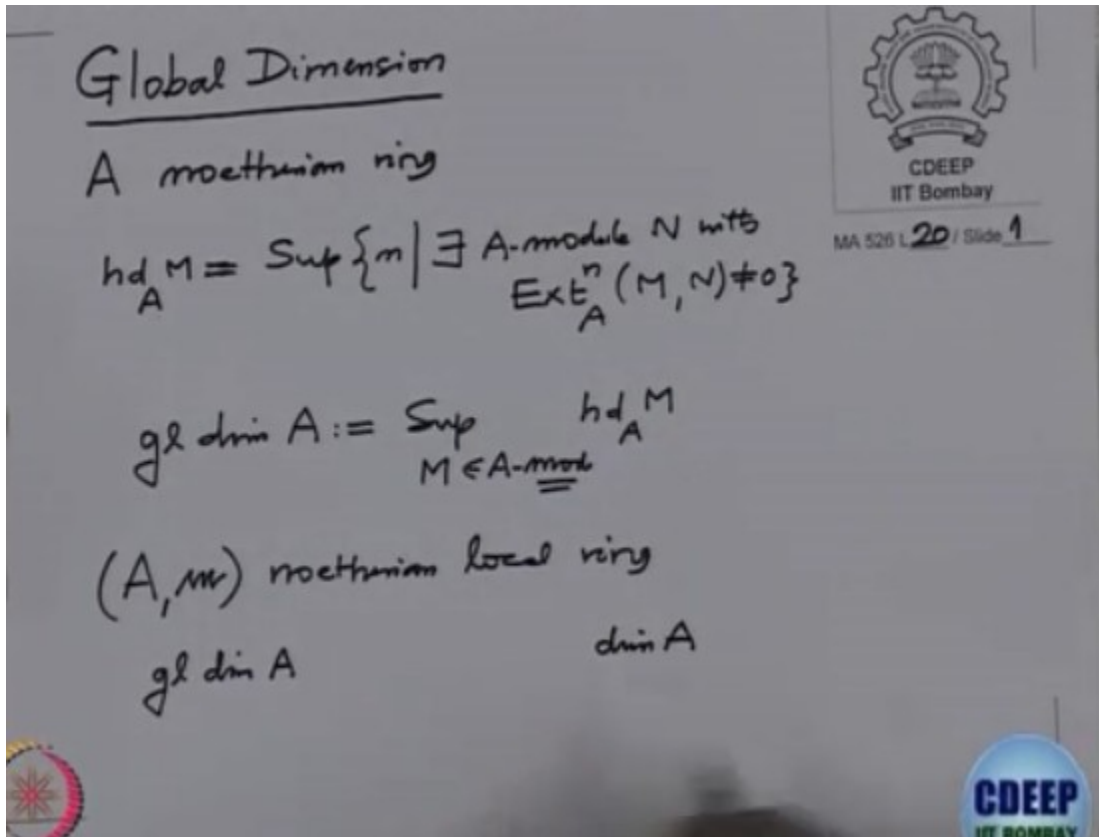 Global Dimension
A noetherian ring
hd_A M = Sup {n | ∃ A-module N with
Ext^n_A (M, N) ≠ 0}
gl dim A := Sup hd_A M
M ∈ A-mod
(A, m) noetherian local ring
gl dim A dim A
CDEEP
IIT Bombay
MA 526 L 20 / Slide 1
CDEEP
IIT BOMBAY